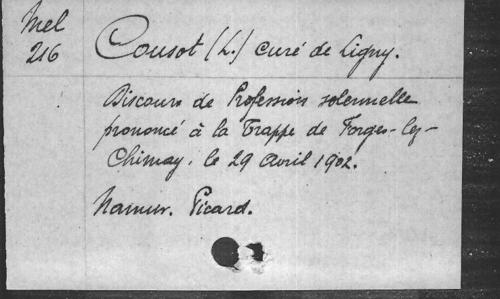 Mel
216
Cousot (L.) curé de Ligny.
Discours de Profession solennelle
prononcé à la Trappe de Forges-lez-
Chimay, le 29 avril 1902.
Namur. Picard.